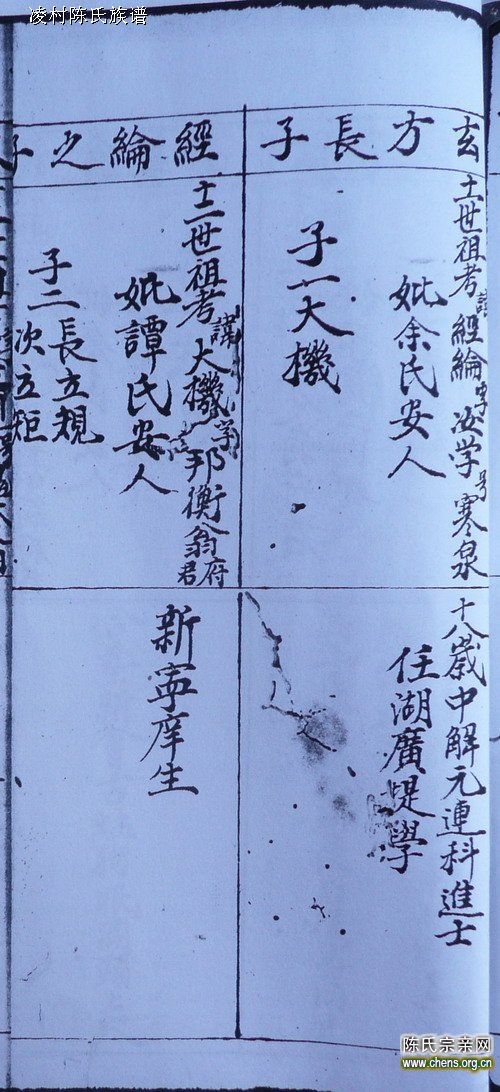 凌村陈氏族谱
玄方長子
十一世祖考諱經綸字汝学号寒泉
妣余氏安人
子一大機
十八歲中解元連科進士
任湖廣提學
經綸之子
十二世祖考諱大機字邦衡翁府君
妣譚氏安人
子二長立規
次立矩
新寧庠生
陈氏宗亲网
www.chens.org.cn